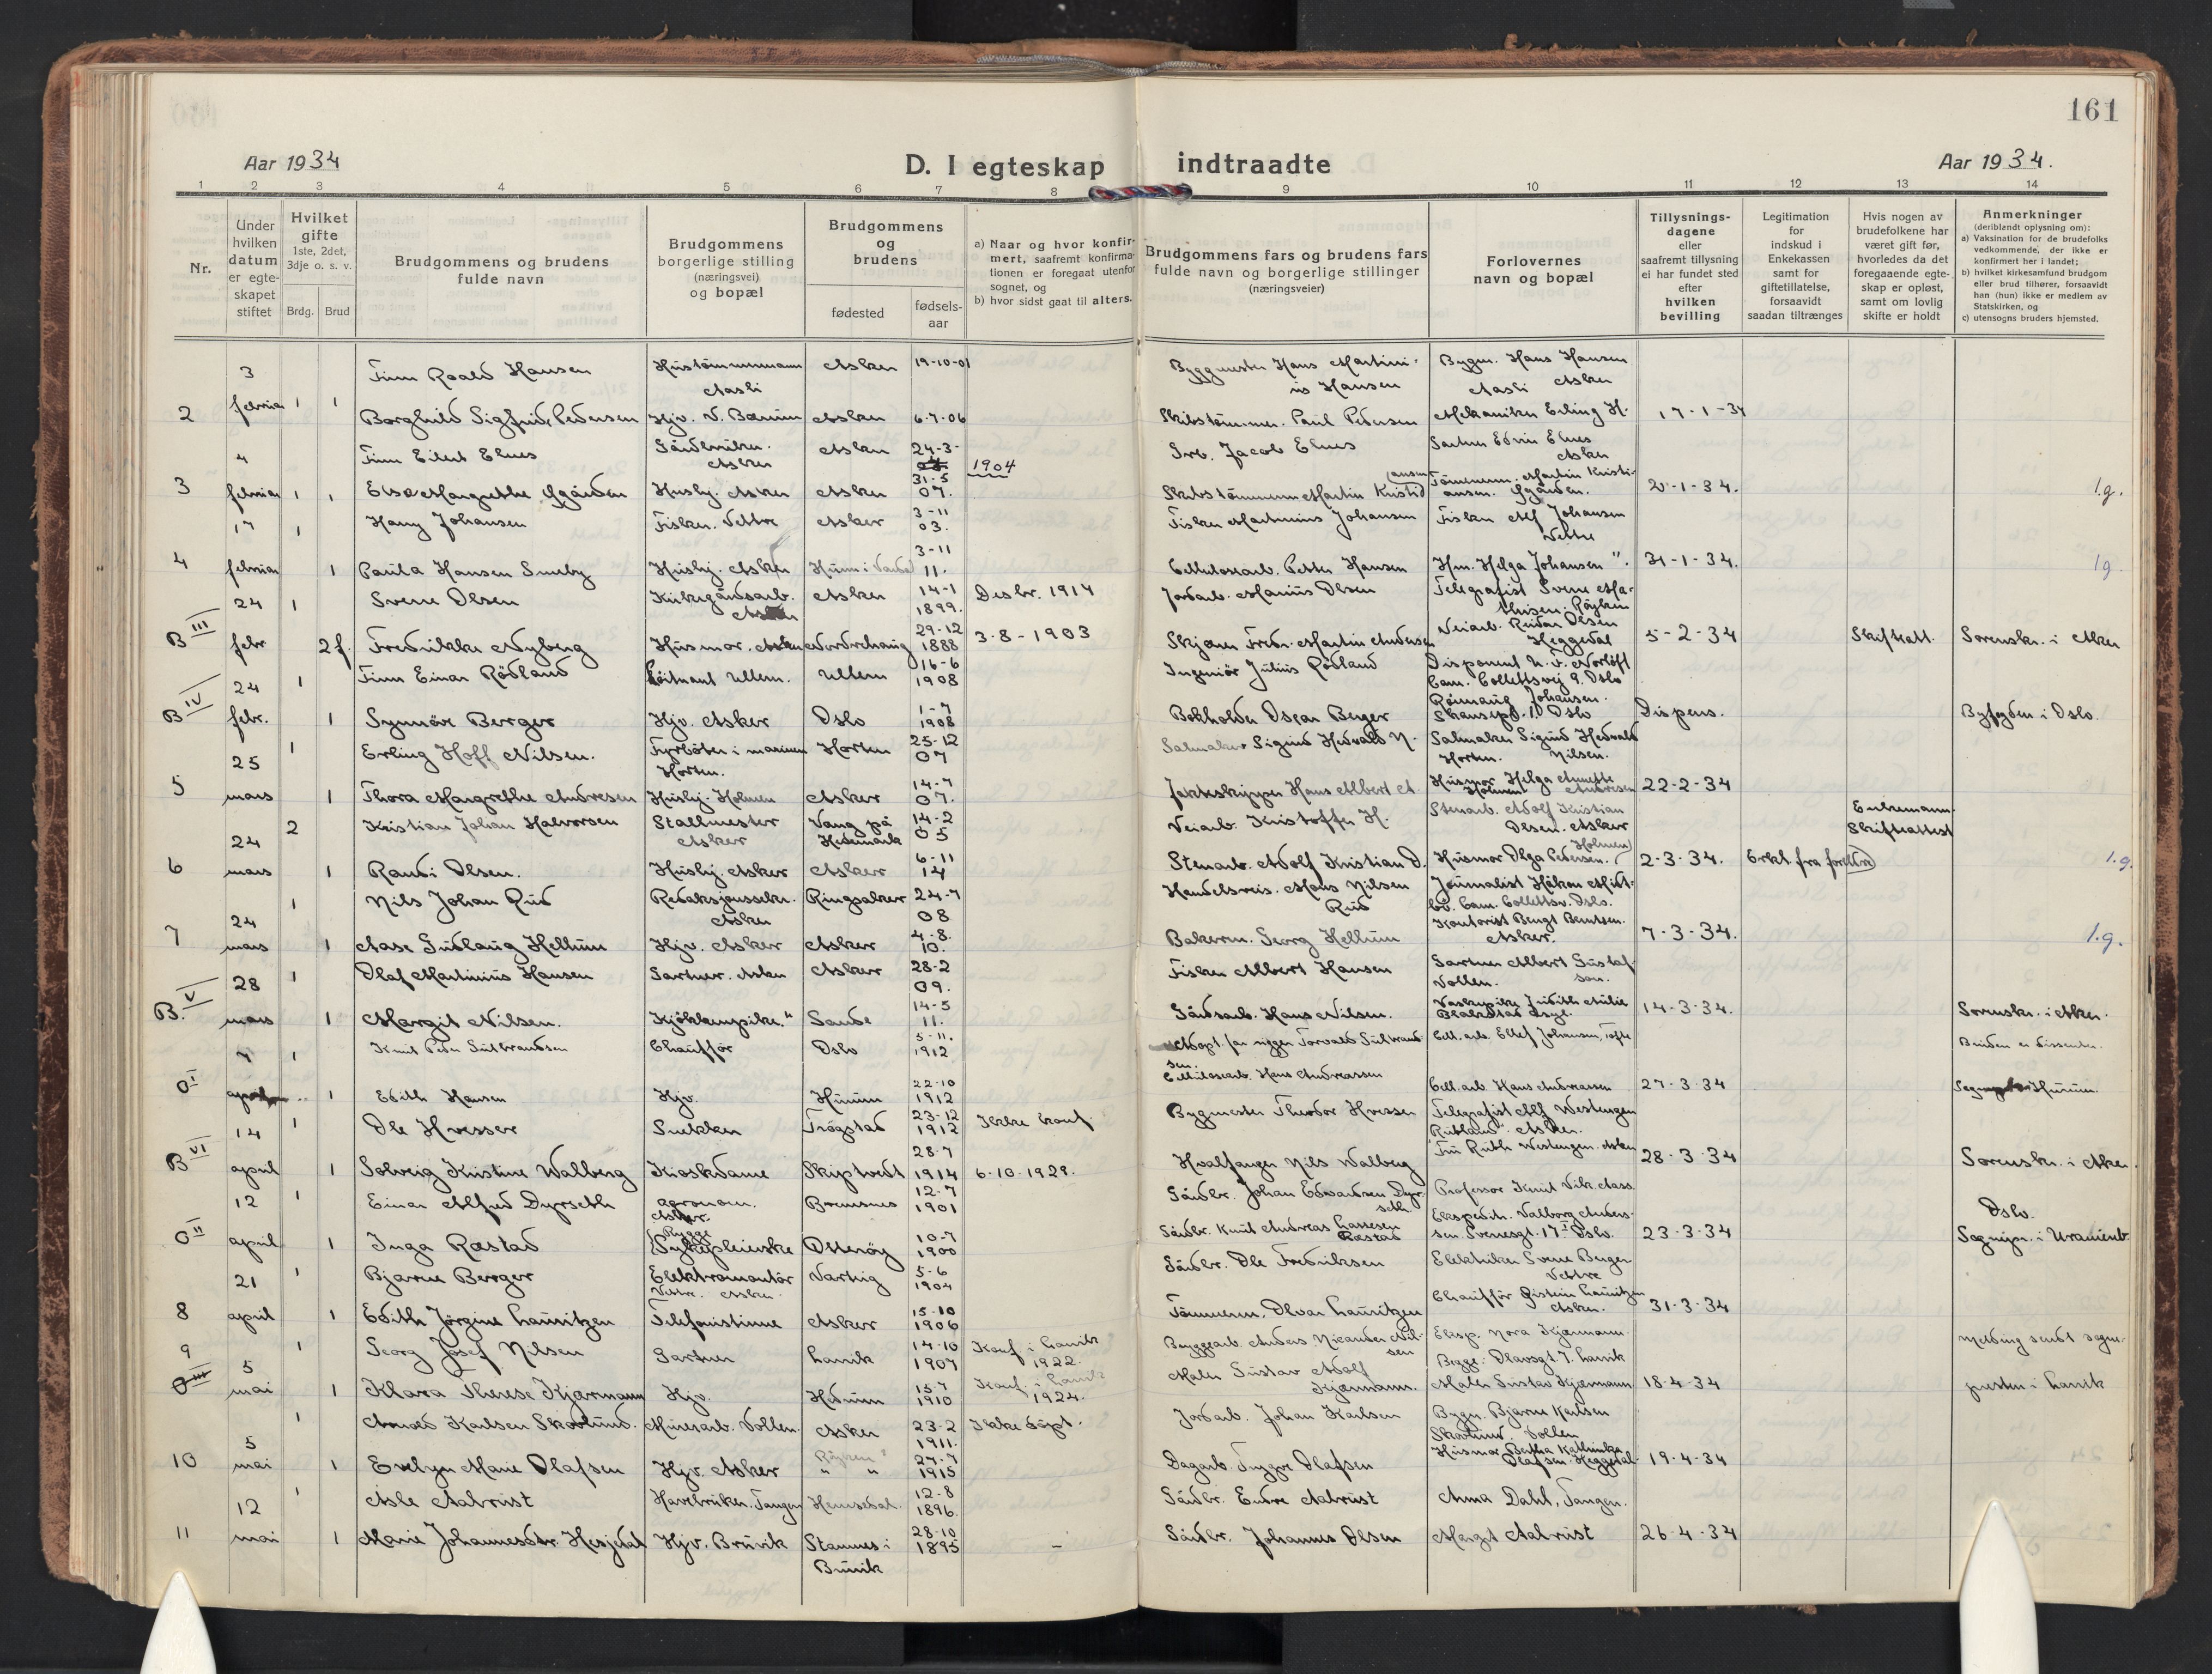 161
Aar 1934
D. I egteskap indtraadte
Aar 1934.
1 2 3 4 5 6 7 8 9 10 11 12 13 14
Nr.
Under hvilken datum er egte-skapet stiftet
Hvilket gifte
1ste, 2det, 3dje o. s. v.
Brdg. Brud
Brudgommens og brudens fulde navn
Brudgommens borgerlige stilling (næringsvei) og bopæl
Brudgommens og brudens
fødested
fødsels-aar
a) Naar og hvor konfir-mert, saafremt konfirma-tionen er foregaat utenfor sognet, og
b) hvor sidst gaat til alters.
Brudgommens fars og brudens fars fulde navn og borgerlige stillinger (næringsveier)
Forlovernes navn og bopæl
Tillysnings-dagene eller saafremt tillysning ei har fundet sted efter hvilken bevilling
Legitimation for indskud i Enkekassen samt for giftetillatelse, forsaavidt saadan tiltrænges
Hvis nogen av brudefolkene har været gift før, hvorledes da det foregaaende egte-skap er opløst, samt om lovlig skifte er holdt
Anmerkninger
(deriblandt oplysning om):
a) Vaksination for de brudefolks vedkommende, der ikke er konfirmert her i landet;
b) hvilket kirkesamfund brudgom eller brud tilhører, forsaavidt han (hun) ikke er medlem av Statskirken, og
c) utensogns bruders hjemsted.
3 Finn Roald Hansen Hustømmermann Aasli Asker 19-10-01 Byggmester Hans Martini-us Hansen Bygm. Hans Hansen Aasli Asker
2 februar 1 1 Borghild Sigfrid Pedersen Hjv. V. Bærum Asker 6-7-06 Skibstømmer. Paul Pedersen Mekaniker Erling H. 17-1-34
4 Finn Eilert Elnes Gårdbruker. Asker Asker 24-3- 1904 Grb. Jacob Elnes Gartner Edvin Elnes Asker
3 februar 1 1 Elsa Margrethe Ggården Husbj. Asker Asker 31-5 07. Skibstømmerm Martin Kristi ansen Tømmerm. Martin Kristi-ansen. Ggården. 20-1-34. 1.g.
17 1 Harry Johansen Fisker. Vettre Asker 3-11 03. Fisker Martinius Johansen Fisker Alf Johansen Vettre
4 februar 1 Paula Hansen Smeby Husbj. Asker 3-11 11. Cellulosearb. Petter Hansen Hm. Helga Johansen ". 31-1-34. 1 g.
24 1 Sverre Olsen Kirkegårdsarb. Asker Asker 14-1 1899. Desbr. 1914 Jordarb. Marius Olsen Telegrafist Sverre Ma-thisen. Røyken
B III febr 2 f. Fredrikke Nyberg Husmor. Asker Norderhaug 29-12 1888 3-8-1903 Skjærer Fredr. Martin Andersen Veiarb. Reidar Olsen Heggedal 5-2-34 Skifteatt. Sorenskr. i Aker
24 1 Finn Einar Rødland Løitnant Ullern. Ullern 16-6 1908 Ingeniør Julius Rødland Disponent N. F. Nortoft Cam. Collettsvej 9. Oslo
B IV febr. 1 Synnøve Berger Hjv. Asker Oslo 1-7 1908 Bokholder Oscar Berger Rønnaug Johansen. Oslo Dispens. Byfogden i Oslo.
25 1 Erling Hoff Nilsen. Fyrbøter i marinen Horten. Horten 25-12 07 Salmaker Sigurd Hedvald N. Salmaker Sigurd Hedvald Nilsen. Horten.
5 mars 1 Thora Margrethe Andresen Husbj. Holmen Asker 14-7 07. Jaktskipper Hans Albert A. Husmor Helga Annette Andresen Holmen 22-2-34
24 2 Kristian Johan Halvorsen Stallmester Asker Vang på Hedemark 14-2 05 Veiarb. Kristoffer H. Stenarb. Adolf Kristian Olsen. Asker Enkemann Skifteattest
6 mars 1 Randi Olsen. Husbj. Asker Asker 6-11 14 Stenarb. Adolf Kristian O. Husmor Olga Pedersen. Holmen 2-3-34. Erkl. fra foreldre 1.g.
24 1 Nils Johan Rud Redaksjonssekr. Asker Ringsaker 24-7 08 Handelsreis. Hans Nilsen Rud Journalist Håkon Cam. Collettsv. Oslo.
7 mars 1 Aase Gudlaug Hellum Hjv. Asker Asker 4-8. 10. Bakerm. Georg Hellum Kontorist Bengt Berntsen. Asker. 7-3-34. 1.g.
28 1 Olaf Martinius Hansen Gartner. Asker Asker 28-2 09. Fisker Albert Hansen Gartner Albert Gustaf-sen. Vollen.
B. V mars 1 Margit Nilsen. Kjøkkenpike. " Sande 14-5 11. Gårdsarb. Hans Nilsen. Vaskepike Judith Blakstad Asyl. 14-3-34. Sorenskr. i Aker.
7 1 Knut Peder Gulbrandsen Chauffør Oslo 5-11. 1912 Adopt. far rigger Torvald Gulbrand-sen. Cell. arb. Ellef Johansen, Tofte Bruden er dissenter.
O I april 1 Edith Hansen Hjv. Hurum 22-10 1912 Cellulosearb. Hans Andreassen Cell. arb. Hans Andreassen 27-3-34 Hurum.
14 1 Ole Hvesser Snekker Trøgstad 23-12 1912 Ikke konf. Bygmester Theodor Hvesser Telegrafist Alf Westengen "Rutland". Asker.
B VI april 1 Solveig Kristine Walberg Kioskdame Skiptvedt 28-7 1914 6-10-1929. Hvalfanger Nils Walberg Fru Ruth Westengen. Asker 28-3-34 Sorenskr. i Aker.
12 1 Einar Alfred Dyrseth agronom. Asker. Bremsnes 12-7 1901 Gårdbr. Johan Edvardsen Dyr-seth Professor Knut Vik. Aas. Oslo.
O II april 1 Inga Røstad Sykepleierske Otterøy 10-7 1900 Gårdbr. Knut Andreas Larssen Røstad Ekspedit. Valborg Anders-sen Sverresgt. 17 I Oslo. 23-3-34 Sognepr. i Uranienb.
21 1 Bjarne Berger Elektromontør Vettre. Asker. Varteig 5-6 1904 Gårdbr. Ole Fredriksen Elektriker Sverre Berger Vettre
8 april 1 Edith Jørgine Lauritzen Telefonistinne Asker 15-10 1906 Tømmerm. Olvar Lauritzen Chauffør Øistein Lauritzen Asker. 31-3-34
9 5 1 Georg Josef Nilsen Gartner Larvik 14-10 1907 Konf. i Larvik 1922. Bryggearb. Anders Nicander Nil-sen Eksp. Nora Kjærmann. Begge: Olavsgt. 7. Larvik Melding sendt sogne-
O III mai 1 Klara Therese Kjærmann Hjv. Hedrum 15-7 1910 Konf. i Larvik 1924. Maler Gustav Adolf Kjærmann. Maler Gustav Kjærmann 18-4-34 presten i Larvik
5 1 Arnold Karlsen Skovlund. Minerarb. Vollen. Asker 23-2 1911. Ikke døpt. Jordarb. Johan Karlsen Bygn. Bjarne Karlsen Skovlund. Vollen
10 mai 1 Evelyn Marie Olafsen Hjv. Asker Røyken " " 27-7 1915 Dagarb. Trygve Olafsen Husmor Bertha Kathinka Olafsen. Heggedal 19-4-34
12 1 Asle Aalrust Havebruker. Tangen Hemsedal. 12-8 1896. Gårdbr. Endre Aalrust Anna Dahl, Tangen.
11 mai 1 Marie Johannesdtr. Hesjedal Hjv. Bruvik Stamnes i Bruvik 28-10 1895 - Gårdbr. Johannes Olsen Margit Aalrust 26-4-34